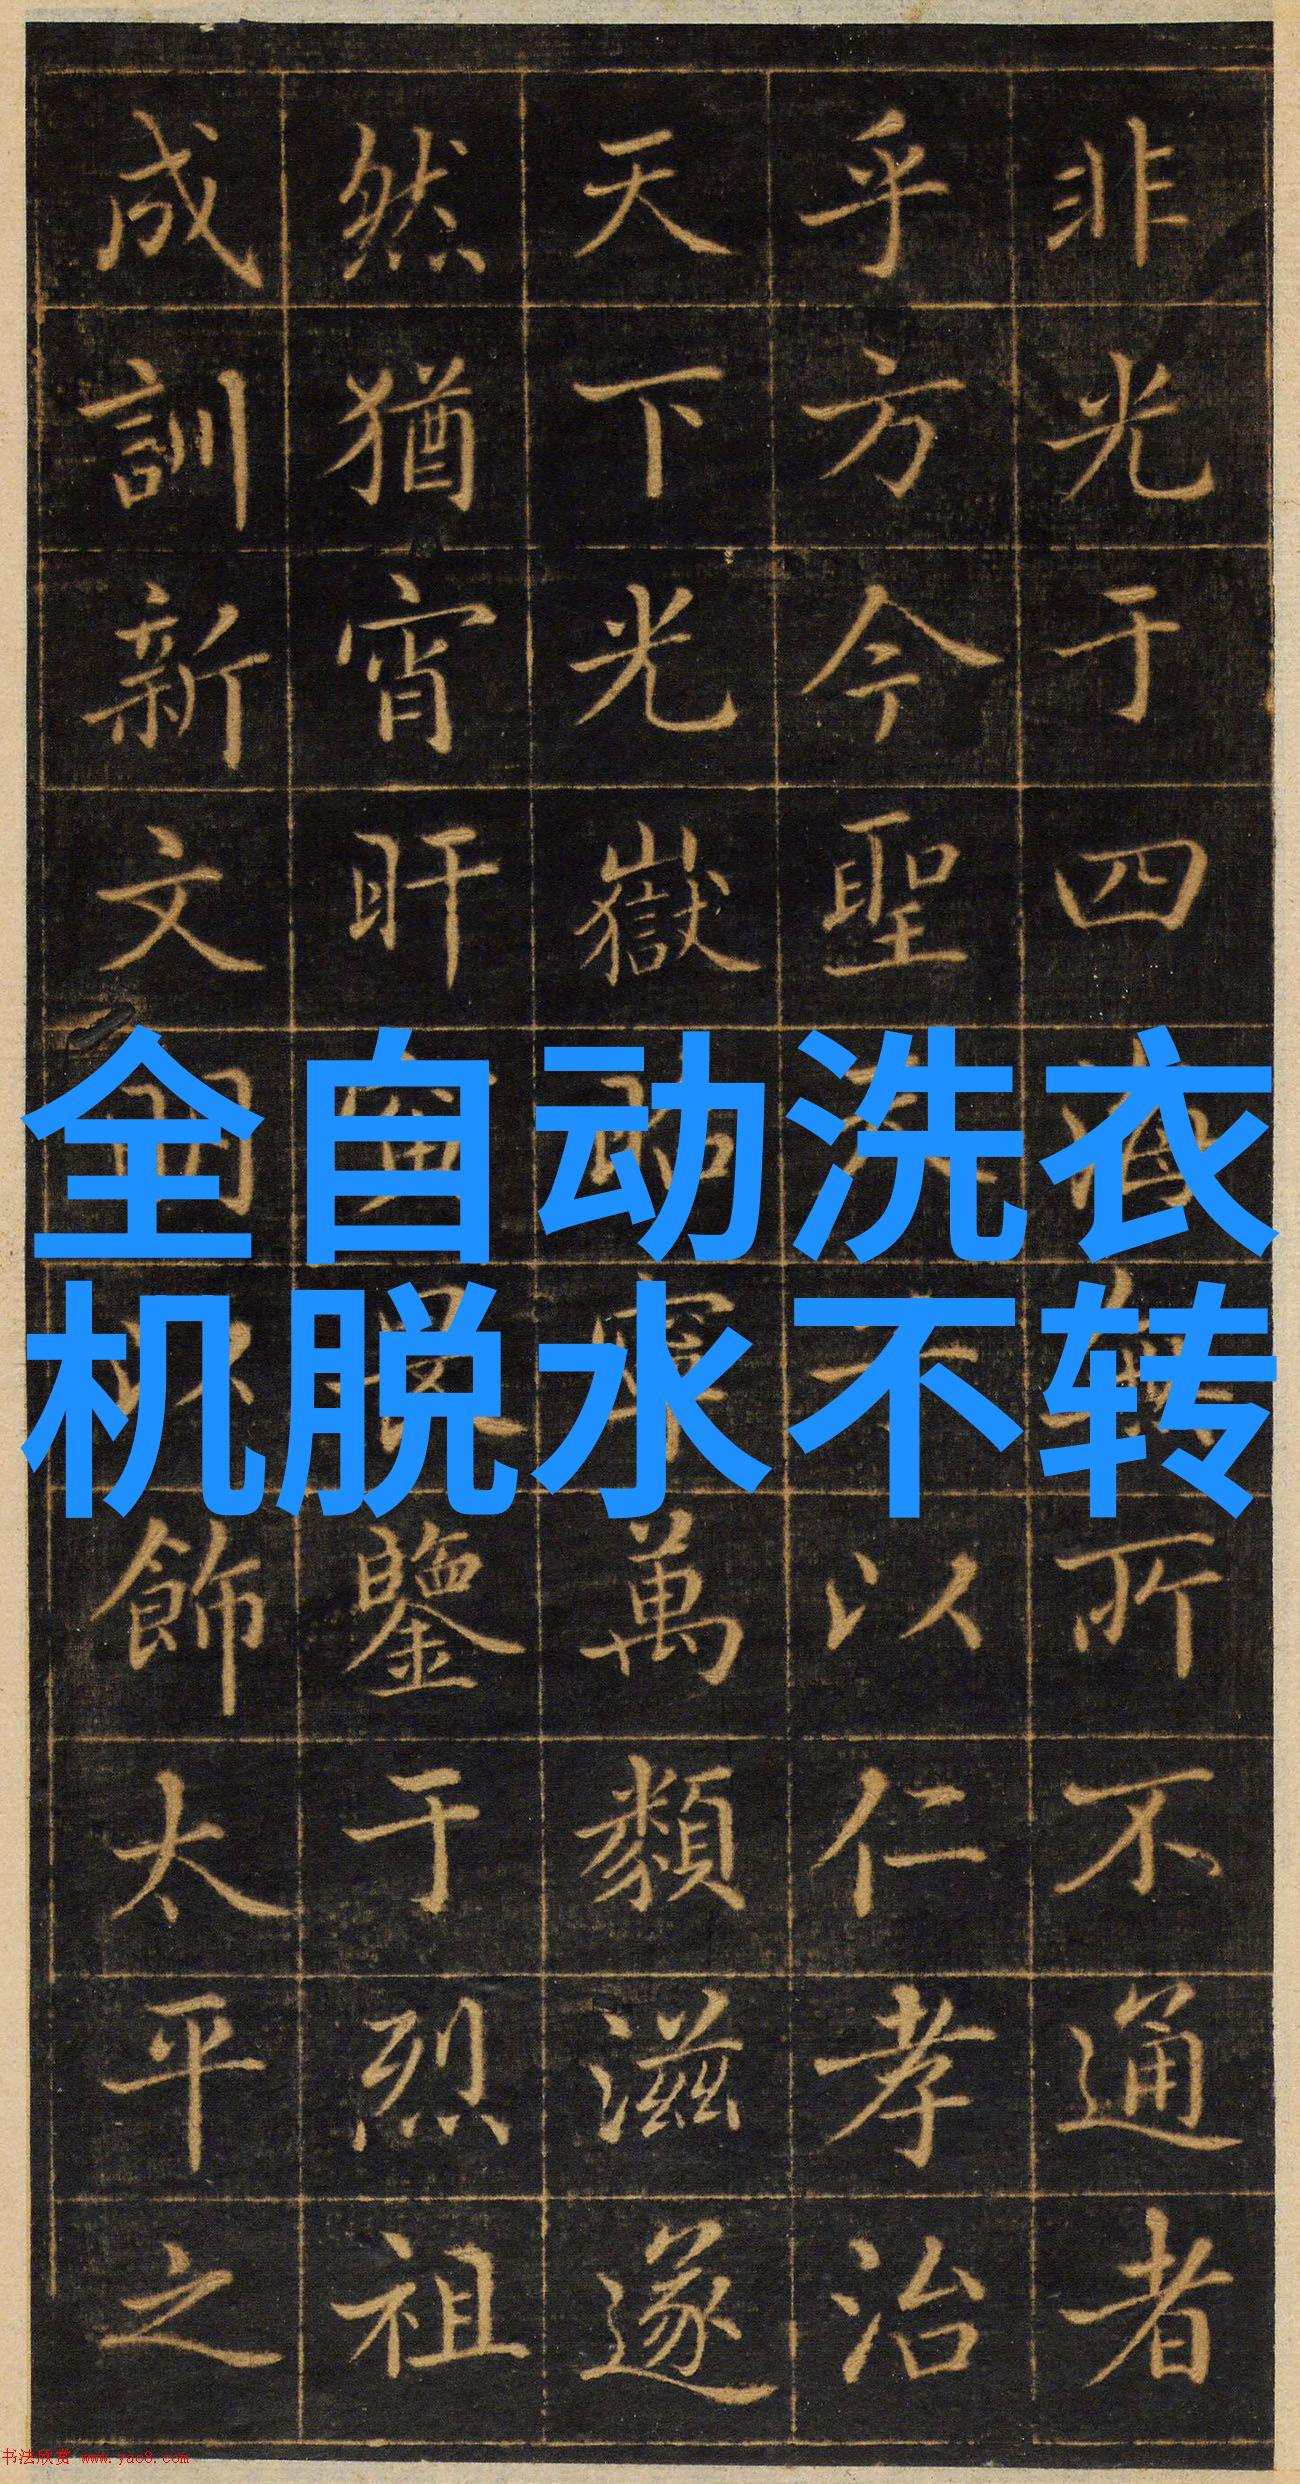 非光于四海無所不通者
乎方今聖天以仁孝治
天下光嶽萬類滋遂
然猶宵旰鑒于烈祖
成訓新文明以飾太平之
全自动洗衣
机脱水不转
书法欣赏 www.yac8.com